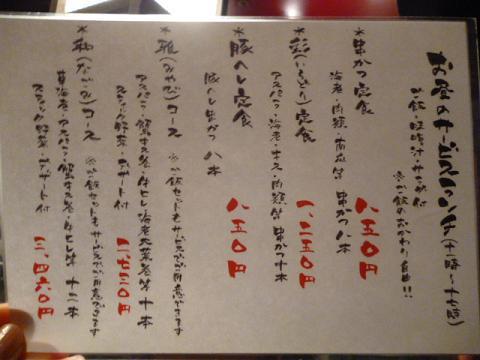 お昼のサービスランチ(十一時〜十七時)
ご飯・味噌汁・サラダ付
※ご飯のおかわり自由!!
＊串かつ定食 八五〇円
海老・肉類・南瓜等 串かつ八本
＊彩(いろどり)定食 一、二五〇円
アスパラ・海老・キス・肉類等 串かつ十本
＊豚ヘレ定食 八五〇円
豚ヘレ串かつ 八本
＊雅(みやび)コース ※ご飯セットもサービスでご用意できます
アスパラ・蟹キス巻・牛ヒレ・海老大葉巻等 十本
スティック野菜・デザート付
＊和(なごみ)コース ※ご飯セットもサービスでご用意できます
車海老・アスパラ・蟹キス巻・牛ヒレ等 十二本
スティック野菜・デザート付